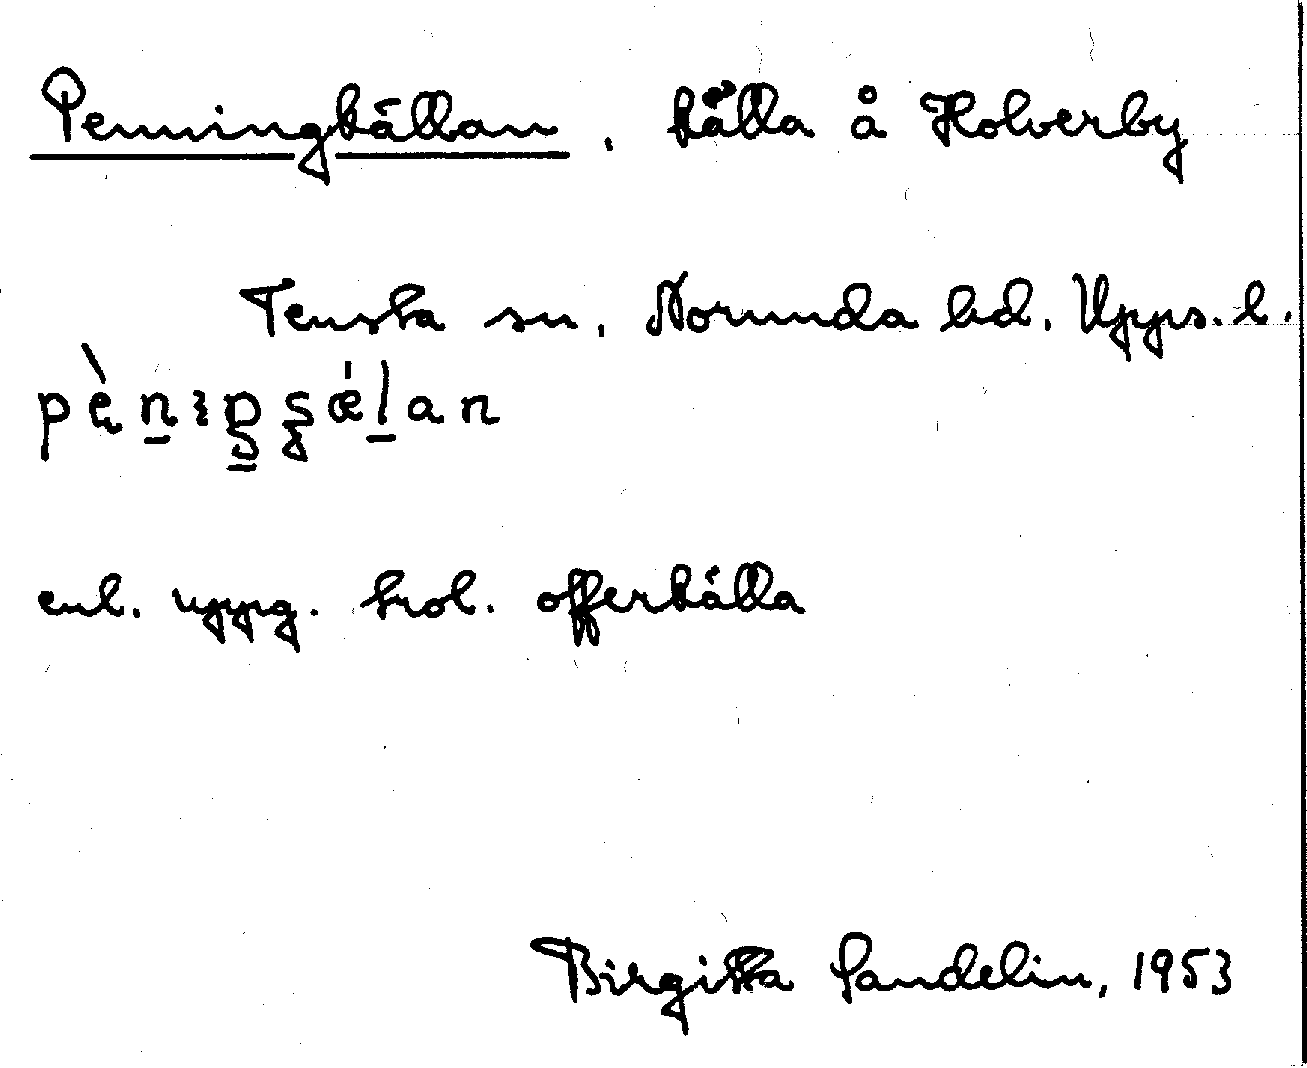 Penningkällan, källa å Holverby
Tensta sn, Norunda hd. Upps. l.
enl. uppg. trol. offerkälla
Birgitta Sandelin, 1953